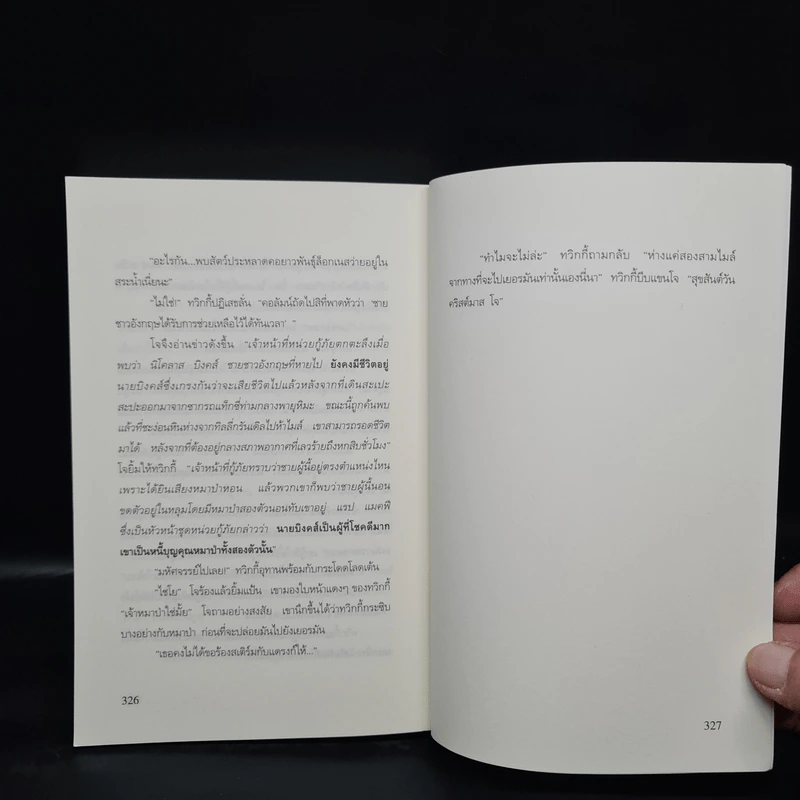 "อะไรกัน...พบสัตว์ประหลาดคอยาวพันธุ์ล็อกเนสว่ายอยู่ใน
สระน้ำเนี่ยนะ"
"ไม่ใช่!" ทวิกกี้ปฏิเสธลั่น "คอลัมน์ถัดไปสิที่พาดหัวว่า 'ชาย
ชาวอังกฤษได้รับการช่วยเหลือไว้ได้ทันเวลา' "
โจจึงอ่านข่าวดังขึ้น "เจ้าหน้าที่หน่วยกู้ภัยตกตะลึงเมื่อ
พบว่า นิโคลาส บิงคส์ ชายชาวอังกฤษที่หายไป ยังคงมีชีวิตอยู่
นายบิงคส์ซึ่งเกรงกันว่าจะเสียชีวิตไปแล้วหลังจากที่เดินสะเปะ
สะปะออกมาจากซากรถแท็กซี่ท่ามกลางพายุหิมะ ขณะนี้ถูกค้นพบ
แล้วที่ชะง่อนหินห่างจากทิลลี่กรันเดิลไปห้าไมล์ เขาสามารถรอดชีวิต
มาได้ หลังจากที่ต้องอยู่กลางสภาพอากาศที่เลวร้ายถึงหกสิบชั่วโมง"
โจยิ้มให้ทวิกกี้ "เจ้าหน้าที่กู้ภัยทราบว่าชายผู้นี้อยู่ตรงตำแหน่งไหน
เพราะได้ยินเสียงหมาป่าหอน แล้วพวกเขาก็พบว่าชายผู้นี้นอน
ขดตัวอยู่ในหลุมโดยมีหมาป่าสองตัวนอนทับเขาอยู่ แรป แมคฟี
ซึ่งเป็นหัวหน้าชุดหน่วยกู้ภัยกล่าวว่า นายบิงคส์เป็นผู้ที่โชคดีมาก
เขาเป็นหนี้บุญคุณหมาป่าทั้งสองตัวนั้น"
"มหัศจรรย์ไปเลย!" ทวิกกี้อุทานพร้อมกับกระโดดโลดเต้น
"ไชโย" โจร้องแล้วยิ้มแป้น เขามองใบหน้าแดงๆ ของทวิกกี้
"เจ้าหมาป่าใช่มั้ย" โจถามอย่างสงสัย เขานึกขึ้นได้ว่าทวิกกี้กระซิบ
บางอย่างกับหมาป่า ก่อนที่จะปล่อยมันไปยังเยอรมัน
"เธอคงไม่ได้ขอร้องสเติร์มกับแดรงก์ให้..."
326
"ทำไมจะไม่ล่ะ" ทวิกกี้ถามกลับ "ห่างแค่สองสามไมล์
จากทางที่จะไปเยอรมันเท่านั้นเองนี่นา" ทวิกกี้บีบแขนโจ "สุขสันต์วัน
คริสต์มาส โจ"
327